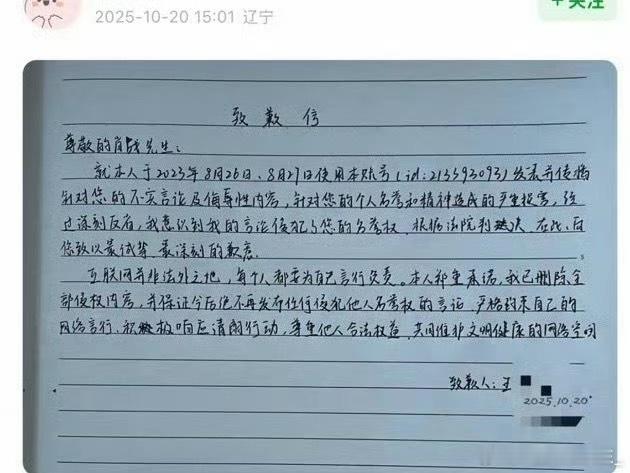 2025-10-20 15:01 辽宁
+关注
致歉信
尊敬的肖战先生：
就本人于2023年8月26日、8月27日使用本账号（id:213593093）发表并传播
针对您的不实言论及侮辱性内容，针对您的个人名誉和精神造成的严重损害，经
过深刻反省，我意识到我的言论侵犯了您的名誉权，根据法院判决，在此，向
您致以最诚挚、最深刻的歉意。
互联网并非法外之地，每个人都要为自己言行负责。本人郑重承诺，我已删除全
部侵权内容，并保证今后绝不再发布任何侵犯他人名誉权的言论，严格约束自己的
网络言行、积极响应清朗行动，尊重他人合法权益，共同维护文明健康的网络空间
致歉人：王
2025.10.20